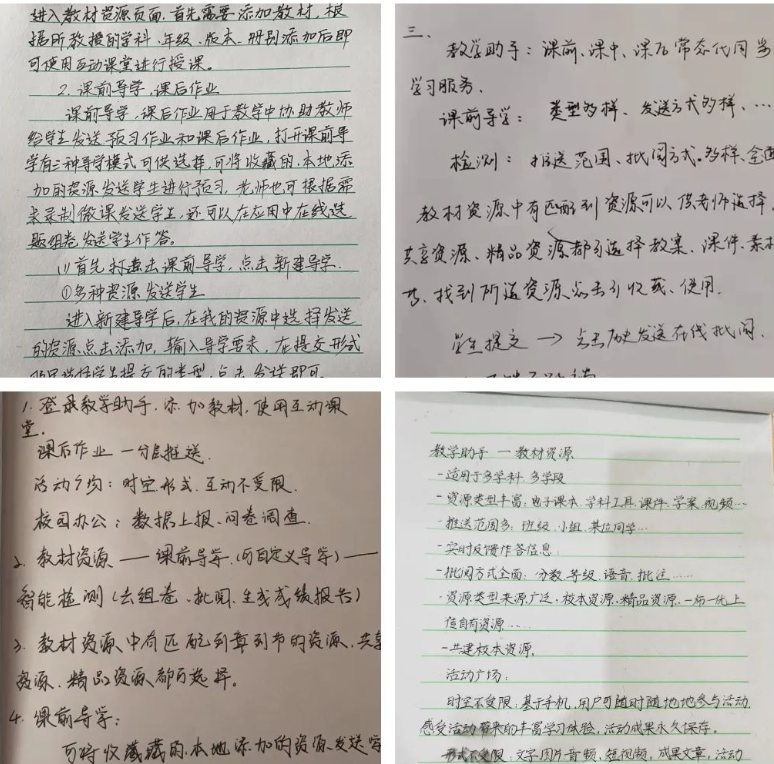 进入教材资源页面,首先需要添加教材,根
据所教授的学科、年级、版本、册别添加后即
可使用互动课堂进行授课。
2. 课前导学、课后作业
课前导学、课后作业用于教学中协助教师
给学生发送预习作业和课后作业,打开课前导
学有三种导学模式可供选择,可将收藏的、本地添
加的资源发送学生进行预习,老师也可根据需
求录制微课发送学生,还可以在应用中在线选
题组卷发送学生作答。
(1)首先打点击课前导学,点击新建导学.
①多种资源发送学生
进入新建导学后,在我的资源中选择发送
的资源点击添加,输入导学要求,在提交形式
学生提交的类型,点击发送即可
三.
教学助手:课前、课中、课后常态化同步
学习服务.
课前导学:类型多样、发送方式多样、…
检测:推送范围、批阅方式.多样、全面
教材资源中有匹配到资源可以供老师选择.
共享资源、精品资源都可选择教案、课件、素材
等、找到所选资源点击引收藏、使用.
学生提交 → 点击历史发送在线批阅.
1. 登录教学助手,添加教材,使用互动课
堂.
课后作业 — 分层推送.
活动广场:时空形式、互动不受限.
校园办公:数据上报、问卷调查.
2. 教材资源 —— 课前导学.(可自定义导学)——
智能检测(去组卷、批阅、生成成绩报告)
3. 教材资源中有匹配到章到节的资源、共享
资源、精品资源都可选择。
4. 课前导学:
可将收藏藏的、本地添加的资源发送学
教学助手 — 教材资源
-适用于多学科 多学段
-资源类型丰富:电子课本、学科工具、课件、学案、视频…
-推送范围多:班级、小组、某位同学…
-实时反馈作答信息
-批阅方式全面:分数、等级、语音、批注……
-资源类型来源广泛:校本资源、精品资源、一师一优上
值自有资源……
-共建校本资源。
活动广场:
时空不受限:基于手机,用户可随时随地地参与活动
感受活动带来的丰富学习体验,活动成果永久保存。
形式不受限:文字图片音频、短视频、成果文章,活动